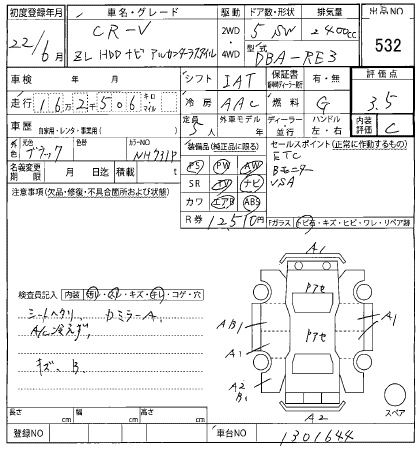 初度登録年月 車名・グレード 駆動 ドア数・形状 排気量 出品NO
22/6月 CR-V 2WD 5 SW 2400cc 532
ZL HDDナビ アルカンターラスタイル 4WD 型式 DBA-RE3
車検 年 月 シフト IAT 保証書 有・無 評価点
走行 16万2千506 キロ・マイル 冷房 AAC 燃料 G 3.5
車歴 自家用・レンタ・事業用( ) 定員 5人 外車モデル 年 ディーラー 並行 ハンドル 左・右 内装評価 C
外色 元色 ブラック 色替 カラーNO NH731P 装備品(純正品に限る) セールスポイント(正常に作動するもの)
名義変更期限 月 日迄 積載 t PS PW AW ETC
注意事項(欠品・修復・不具合箇所および状態) SR TV ナビ Bモニター
カワ エアB ABS VSA
R券 12,510円 Fガラス トビ石・キズ・ヒビ・ワレ・リペア跡
A1
検査員記入 内装 汚れ・スレ・キズ・キレ・コゲ・穴
シートヘタリ、 カミラーA、
A/C冷えず、
キズ、B
アセ
アセ
AB1
A1
A1
A2
B1
A2
スペア
長さ cm 幅 cm 高さ cm
登録NO 車台NO 1301644